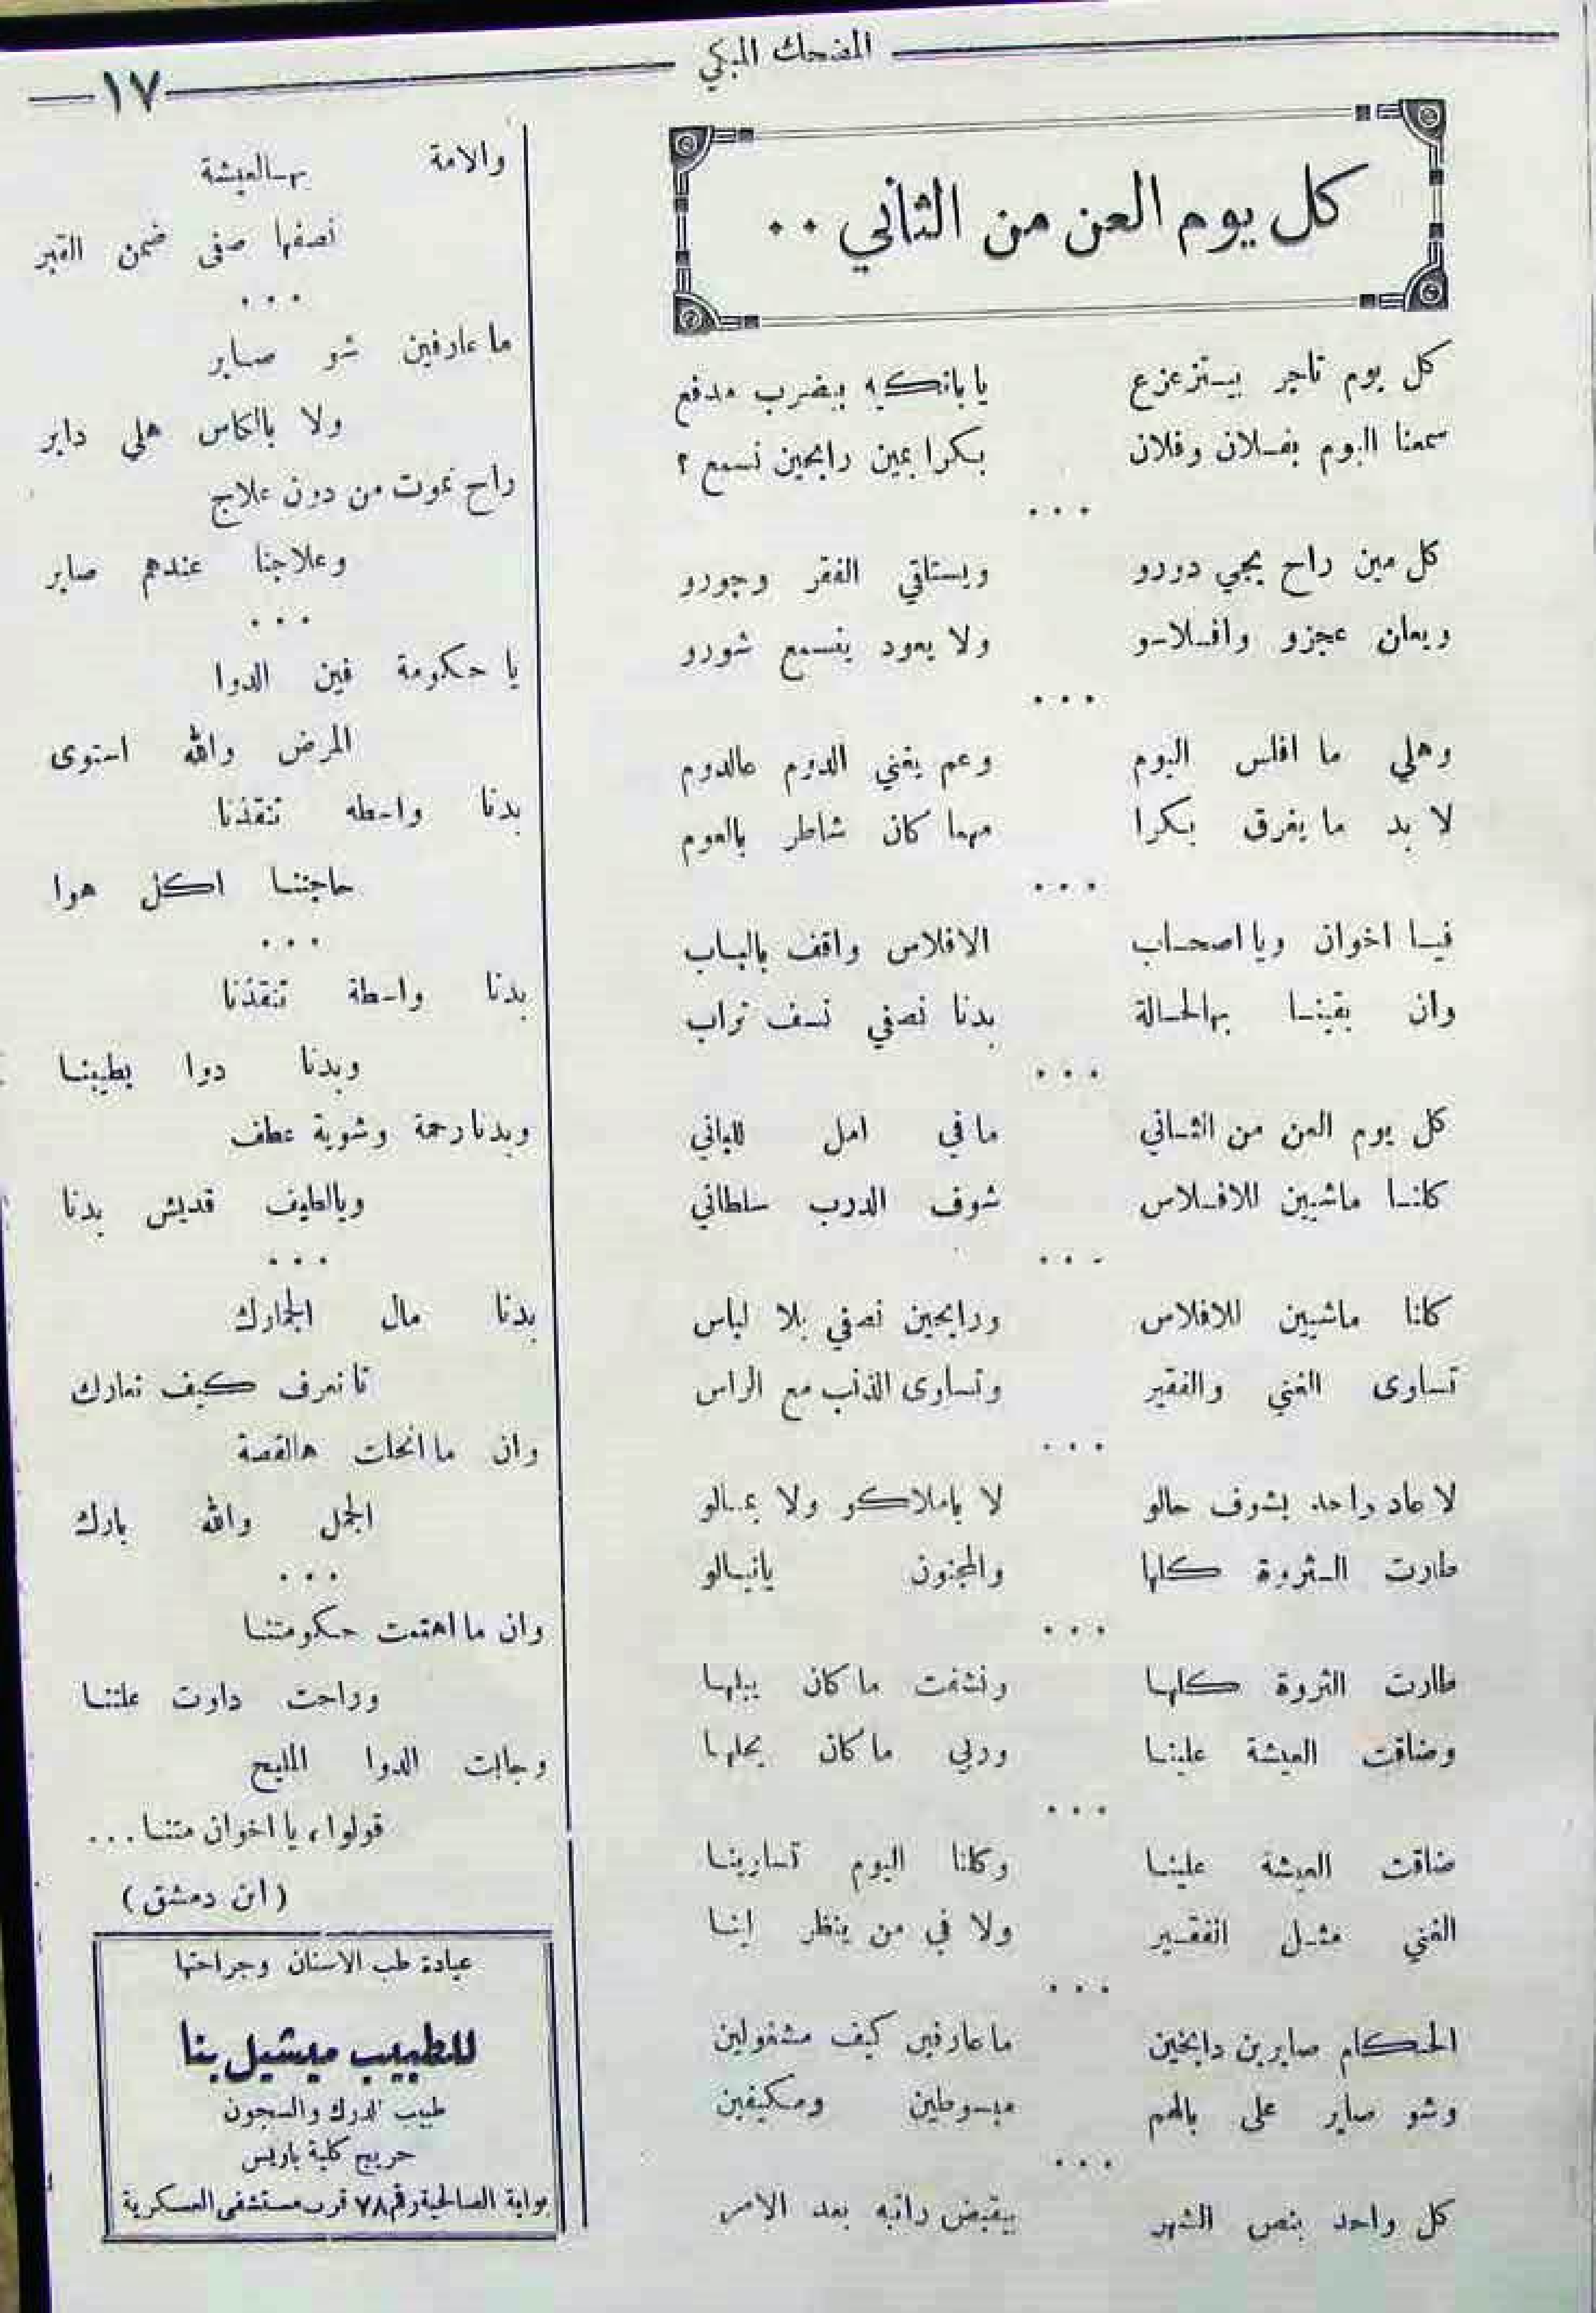 المضحك المبكي
١٧
كل يوم العن من الثاني ..
كل يوم تاجر بيستزعزع يا بانكيه بيضرب مدفع
سمعنا اليوم بفلان وفلان بكرا بمين رايحين نسمع ؟
...
كل مين راح يجي دورو ويستاقي الفقر وجورو
ويعلن عجزو وافلاسو ولا يعود ينسمع شورو
...
وهلي ما افلس اليوم وعم يغني الدوم عالدوم
لا بد ما يغرق بكرا مهما كان شاطر بالعوم
...
فيا اخوان ويا اصحاب الافلاس واقف بالباب
وان بقينا بهالحالة بدنا نصفي نسف تراب
...
كل يوم العن من الثاني ما في امل للباني
كلنا ماشيين للافلاس شوف الدرب سلطاني
...
كلنا ماشيين للافلاس ورايحين نصفي بلا لباس
تساوى الغني والفقير وتساوى الذنب مع الراس
...
لا عاد واحد بشوف حالو لا باملاكو ولا بمالو
طارت الثروة كلها والمجنون يانيالو
...
طارت الثروة كلها ونشفت ما كان يبلها
وضاقت العيشة علينا وربي ما كان يحلها
...
ضاقت العيشة علينا وكلنا اليوم تساوينا
الغني مثل الفقير ولا في من ينظر لينا
...
الحكام صايرين دايخين ما عارفين كيف مشغولين
وشو صاير على بالهم مبسوطين ومكيفين
...
كل واحد بنص الشهر بيقبض راتبه بعد الامر
والامة بهالعيشة
نصفها صفى ضمن القبر
...
ما عارفين شو صاير
ولا بالكاس هلي داير
راح نموت من دون علاج
وعلاجنا عندهم صاير
...
يا حكومة فين الدوا
المرض والله استوى
بدنا واسطه تنقذنا
حاجتنا اكل هوا
...
بدنا واسطة تنقذنا
وبدنا دوا يطيبنا
وبدنا رحمة وشوية عطف
ويالطيف قديش بدنا
...
بدنا مال الجمارك
تا نعرف كيف نعارك
وان ما انحلت هالقصة
الجمل والله بارك
...
وان ما اهتمت حكومتنا
وراحت داوت علتنا
وجابت الدوا المليح
قولوا، يا اخوان متنا...
(ابن دمشق)
عيادة طب الاسنان وجراحتها
للطبيب ميشيل بنا
طبيب الدرك والسجون
خريج كلية باريس
بوابة الصالحية رقم ٧٨ قرب مستشفى العسكرية